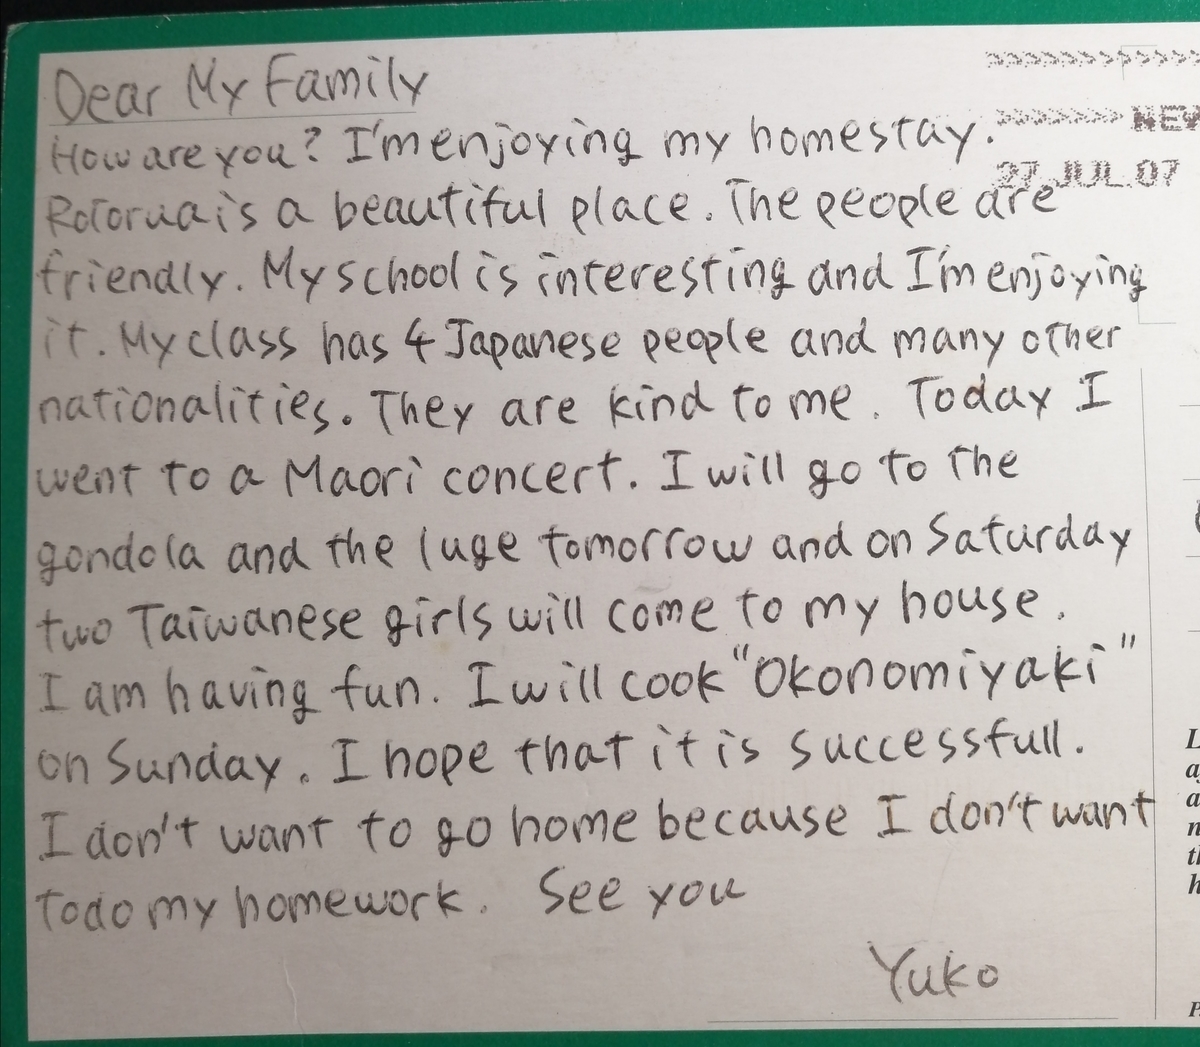 Dear My Family
How are you? I'm enjoying my homestay.
NEW
27 JUL 07
Rotorua is a beautiful place. The people are
friendly. My school is interesting and I'm enjoying
it. My class has 4 Japanese people and many other
nationalities. They are kind to me. Today I
went to a Maori concert. I will go to the
gondola and the luge tomorrow and on Saturday
two Taiwanese girls will come to my house.
I am having fun. I will cook "Okonomiyaki"
on Sunday. I hope that it is successfull.
I don't want to go home because I don't want
to do my homework. See you
Yuko